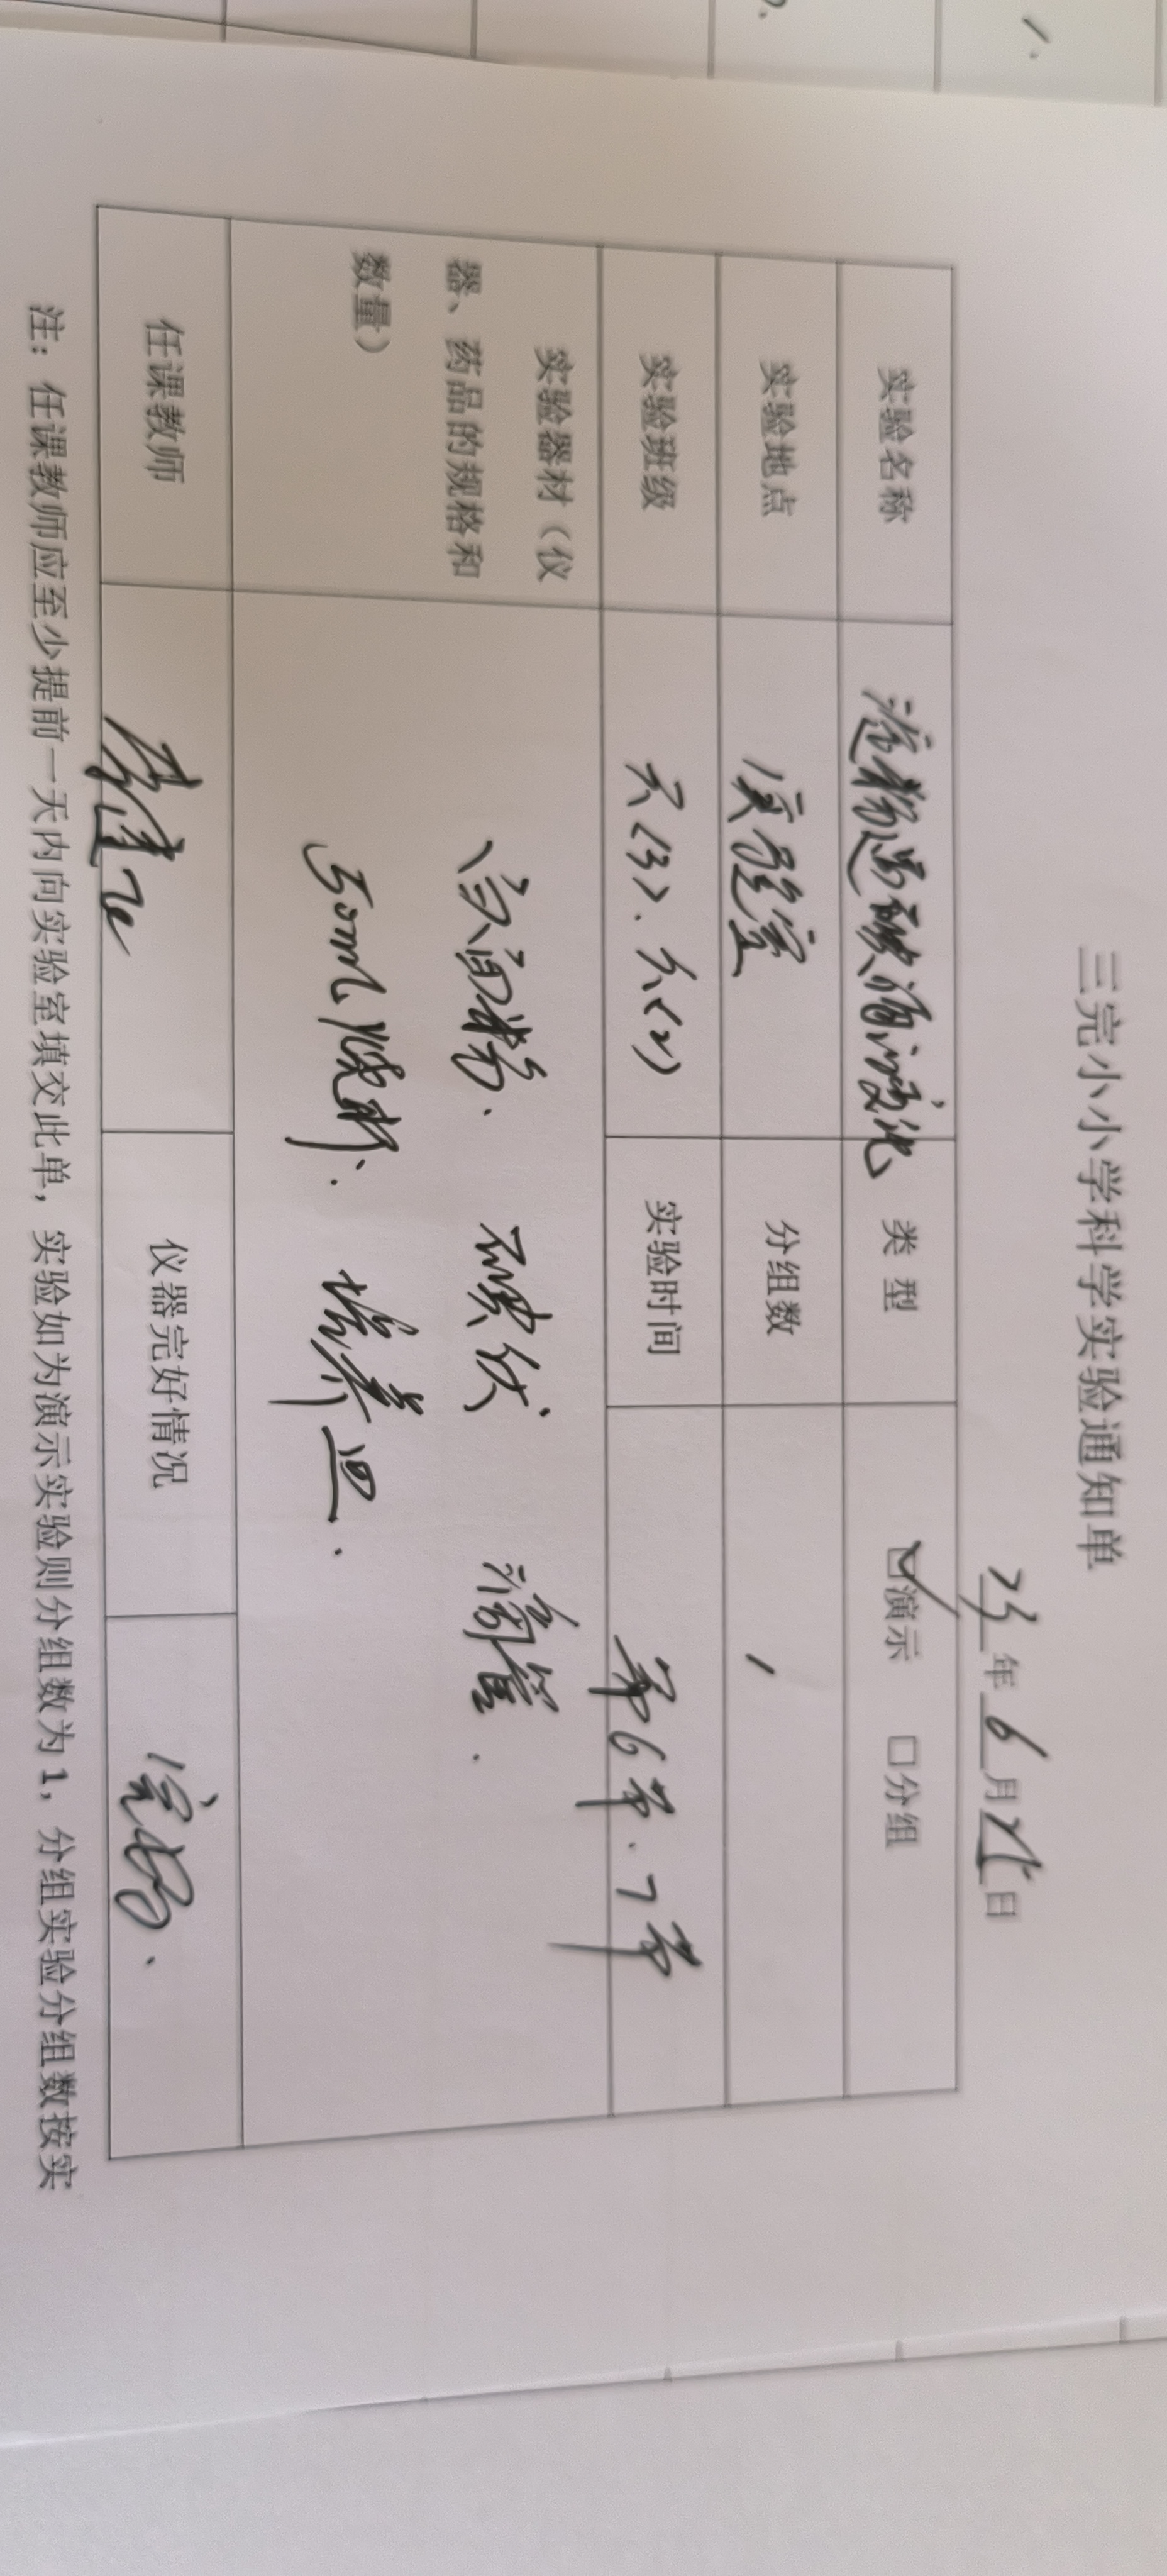 三完小小学科学实验通知单
23年6月25日
实验名称 淀粉遇碘酒变化 类 型 ☑演示 □分组
实验地点 实验室 分组数 1
实验班级 六(3)、六(2) 实验时间 第6节、7节
实验器材(仪
器、药品的规格和
数量)
白面粉、碘伏 滴管、
50mL烧杯、培养皿、
任课教师 仪器完好情况 完好、
注：任课教师应至少提前一天内向实验室填交此单，实验如为演示实验则分组数为1，分组实验分组数按实